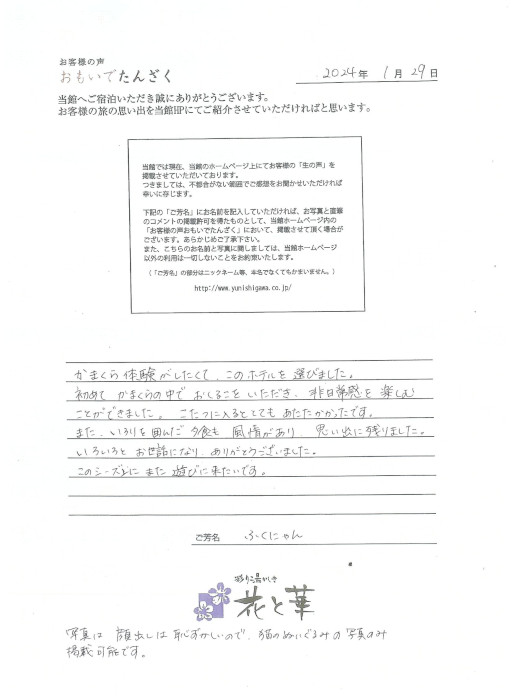 お客様の声
おもいでたんざく
2024年 1月 29日
当館へご宿泊いただき誠にありがとうございます。
お客様の旅の思い出を当館HPにてご紹介させていただければと思います。
当館では現在、当館のホームページ上にてお客様の「生の声」を
掲載させていただいております。
つきましては、不都合がない範囲でご感想をお聞かせいただければ
幸いに存じます。
下記の「ご芳名」にお名前を記入していただければ、お写真と直筆
のコメントの掲載許可を得たものとして、当館ホームページ内の
「お客様の声おもいでたんざく」において、掲載させて頂く場合が
ございます。あらかじめご了承下さい。
また、こちらのお名前と写真に関しましては、当館ホームページ
以外の利用は一切しないことをお約束いたします。
（「ご芳名」の部分はニックネーム等、本名でなくてもかまいません。）
http://www.yunishigawa.co.jp/
かまくら体験がしたくて、このホテルを選びました。
初めてかまくらの中でおしるこをいただき、非日常感を楽しむ
ことができました。こたつに入るととてもあたたかかったです。
また、いろりを囲んだ夕食も風情があり、思い出に残りました。
いろいろとお世話になり、ありがとうございました。
このシーズンにまた遊びに来たいです。
ご芳名 ふくにゃん
彩り湯かしき
花と華
写真は顔出しは恥ずかしいので、猫のぬいぐるみの写真のみ
掲載可能です。